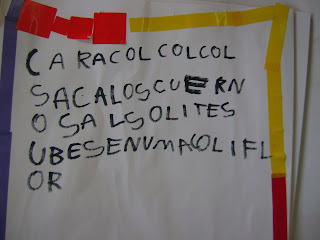 CARACOLCOLCOL
SACALOSCUERN
OSALSOLITES
UBESENUMACOLIFL
OR